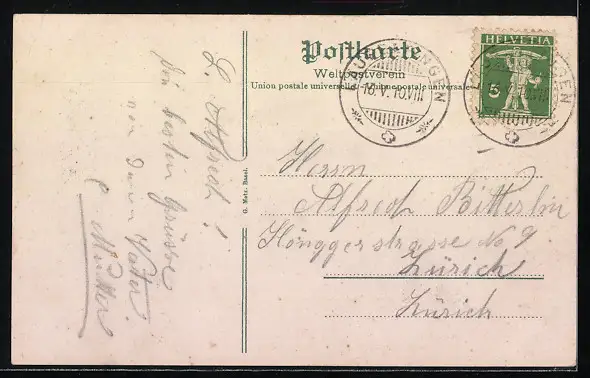 Postkarte
Weltpostverein
Union postale universelle. - Unione postale universale
HELVETIA
5
16.V.10.VIII
G. Metz, Basel.
L. Alfred!
Die besten Grüsse
von Deinen Vater
& Mutter
Herrn
Alfred Bitterlin
Hönggerstrasse No 9
Zürich
Zürich